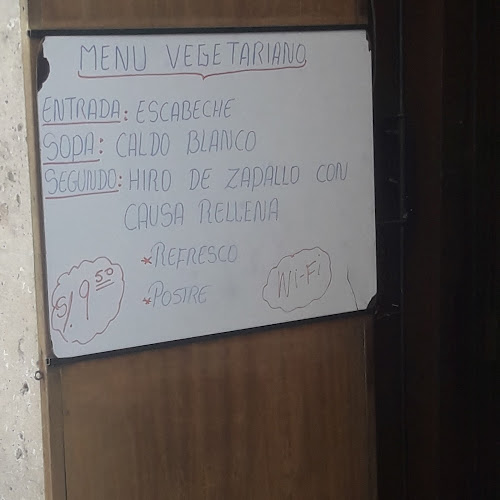 MENU VEGETARIANO
ENTRADA: ESCABECHE
SOPA: CALDO BLANCO
SEGUNDO: HIRO DE ZAPALLO CON
CAUSA RELLENA
*REFRESCO
*POSTRE
S/. 9 50
Wi-Fi